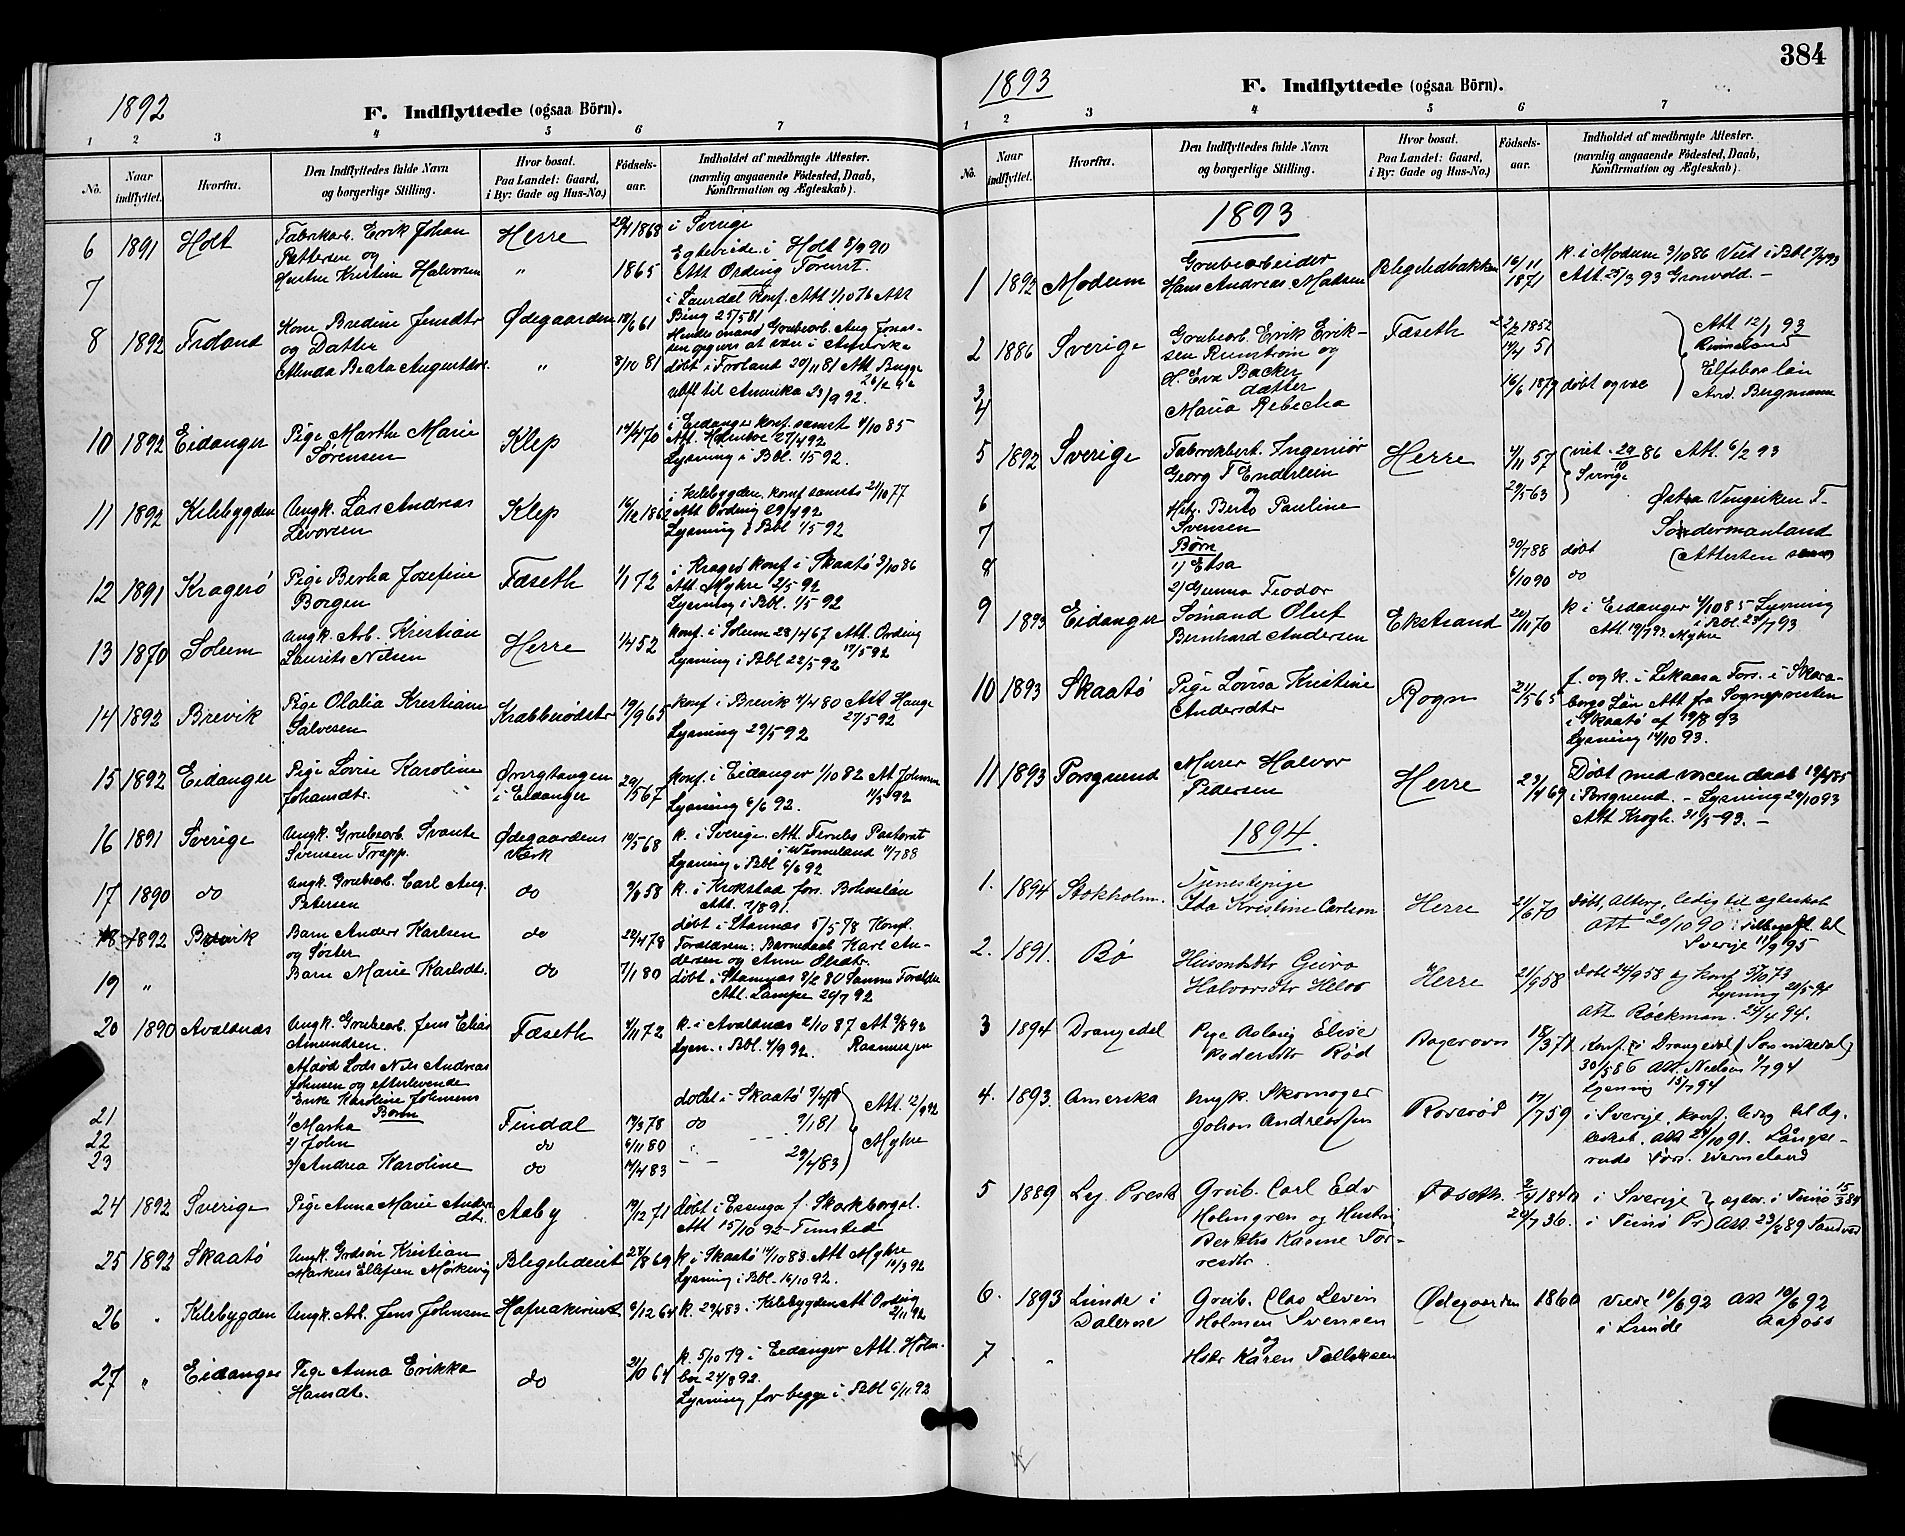 1892
F. Indflyttede (ogsaa Börn).
1 2 3 4 5 6 7
No. Naar indflyttet. Hvorfra. Den Indflyttedes fulde Navn og borgerlige Stilling. Hvor bosat. Paa Landet: Gaard, i By: Gade og Hus-No.) Födsels-aar. Indholdet af medbragte Attester. (navnlig angaaende Födested, Daab, Konfirmation og Ægteskab).
6 1891 Holt Fabrikarb. Erik Johan Herre 1868 i Sverige
Pettersen og Egtevide i Holt 8/9 90
7 Hustru Kristine Halvorsen " 1865 Att Ording
8 1892 Froland Kone Bredine Jensdtr Ødegaarden 18/6 61 i Laurdal Konf. Att 1/10 76 Att
og Datter Bing 25/5 81
Alinda Beata Augustdtr. " 8/10 81 døbt i Froland 20/11 81 Att Bugge
udfl til Amerika 23/9 92.
10 1892 Eidanger Pige Marthe Marie Klep 14/4 70 i Eidanger konf. samst 4/10 85
Sørensen Att. Holmboe 27/4 92
Lysning i Bbl. 1/5 92.
11 1892 Kilebygden Ungk. Lars Andreas Klep 16/12 1862 i Kilebygden konf samsts 21/10 77
Levorsen Att Ording 29/4 92
Lysning i Bbl 1/5 92
12 1891 Kragerö Pige Bertha Josefine Fæseth 1/1 72 i Kragerö konf i Skaatö 3/10 86
Borgen Att. Myhre 2/5 92
Lysning i Bbl. 1/5 92
13 1870 Solum Ungk. Arb. Kristian Herre 1/4 52 konf. i Solum 28/4 67 Att. Ording
Laurits Nilsen Lysning i Bbl 22/5 92 17/5 92
14 1892 Brevik Pige Olalia Kristiane Krabberødstr 19/9 65 konf i Brevik 4/4 80 Att Hauge
Salvesen Lysning 29/5 92 27/5 92
15 1892 Eidanger Pige Lovise Karoline Ørvigtangen 29/5 67 konf. i Eidanger 1/10 82 Att Johnsen
Johansdtr. i Eidanger Lysning 6/6 92. 11/5 92
16 1891 Sverige Ungk. Grubearb. Svante Ødegaardens 10/5 68 k. i Sverige. Att. Pastorat
Svensen Trapp. Værk i Wermeland 11/7 88
Lysning i Bbl 6/6 92
17 1890 do Ungk. Grubearb. Carl Aug. do 9/6 58 k. i Krokstad fors. Bohuslän
Petersen Att. 1/8 91.
18 1892 Brevik Barn Anders Karlsen do 22/4 78 døbt i Stamnæs 5/5 78 Konf.
og Søster Forældrene: Karl An-
dersen og Anne Olsdtr.
19 " Barn Marie Karlsdtr. do 7/1 80 døbt i Stamnæs 8/2 80 Samme Forældre
Att. Lampe 20/7 92
20 1890 Avaldnæs Ungk. Grubearb. Jens Elias Fæseth 4/11 72 k. i Avaldnæs 2/10 87 Att 9/8 92
Amundsen. Lysn. i Bbl. 4/9 92. Rasmussen
Afdød Lods Nils Andreas
Johnsen og efterlevende
Enke Karoline Johnsens
Børn
21 1/ Marha Findal 14/3 78 døbt i Skaatö Att. 12/9 92
22 2/ John do 6/11 80 do 9/1 81
23 3/ Andrea Karoline do 14/4 83 29/4 83 Myhre
24 1892 Sverige Pige Anna Marie Anders Aaby 19/12 71 Døbt i Essunga f. Skarborgsl.
dtr. Att 15/10 92
25 1892 Skaatö Ungk. Kristian Blegeliderist 28/8 69 k. i Skaatö 14/10 83. Att Myhre
Markus Ellefsen Mörkevig Lysning i Bbl. 16/10 92. 10/3 92
26 " Kilebygden Ungk. Arb. Jens Johnsen 6/12 64 k. 29/4 83 i Kilebygden Att Ording
2/11 92
27 " Eidanger Pige Anna Erikka do 21/10 64 k. 5/10 79 i Eidanger Att. Holm-
Hansdtr. boe 24/9 92.
Lysning for begge i Bbl 6/11 92
384
1893
F. Indflyttede (ogsaa Börn).
1 2 3 4 5 6 7
No. Naar indflyttet. Hvorfra. Den Indflyttedes fulde Navn og borgerlige Stilling. Hvor bosat. Paa Landet: Gaard, i By: Gade og Hus-No.) Födsels-aar. Indholdet af medbragte Attester. (navnlig angaaende Födested, Daab, Konfirmation og Ægteskab).
1893
1 1892 Modum Grubearbeider Blegelidbakken 16/11 1871 k. i Modum 3/10 86
Hans Andreas Madsen Att. 25/3 93 Gronvold.
2 1886 Sverige Grubearb. Erik Erik- Fæseth 22/2 1852 Att 12/1 93
sen Runström og 14/4 51
3 H. Eva Backer Elfsborslän
datter 16/6 1879 døbt og vac
4 Maria Rebecka Bergmann
5 1892 Sverige Fabrikbest. Ingeniør Herre 4/11 57 viet 29/10 86 Att. 6/2 93
Georg T Enderlein Sverige
og
6 Htr. Berta Pauline 29/5 63 Østra Vingåken
Svensen Södermanland
7 Børn 30/7 88 döbt Attesten
8 1) Elsa 6/10 90 do
2) Gunna Teodor
9 1893 Eidanger Sømand Oluf Ekstrand 20/11 70 k i Eidanger 4/10 85 Lysning
Bernhard Andersen i Bbl. 23/7 93
Att. 19/7 93. Myhre
10 1893 Skaatö Pige Lovisa Kristine Rogn 21/5 65 f. og k. i Fors. i Skara-
Andersdtr borgs Län Att fra Sognepresten
i Skaatö af 19/8 93
Lysning 14/10 93.
11 1893 Porsgrund Murer Halvor Herre 23/4 69 Døbt med voxen daab 19/4 85
Pedersen i Porsgrund. - Lysning 29/10 93
Att Krogh. 31/5 93. -
1894.
1. 1894 Stokholm. Tjenestepige Herre 21/6 70 Døbt, Altberg, ledig til ægteskab
Ida Kristine Carlson Att 20/10 90 : tilbagefl. til
Sverige 11/9 95
2. 1891. Bø Huusmdtr Guro Herre 21/9 58 døbt 24/9 58 og konf 5/10 73
Halvorsdtr Helos Lysning 20/5 94
Att Røckman. 24/4 94.
3 1894 Drangedal Pige Aslaug Elise 18/3 71 Konf. i Drangedal
Pedersdtr Rød 30/5 86 Att. Nielsen 1/7 94
Lysning 15/7 94
4. 1893. Amerika Ungk. Skomager Roserød 17/7 59 i Sverige, konf, ledig til Æg-
Johan Andreassen teskab. Att 24/10 91. Långse-
ruds Förs. Wermeland
5 1889 Grub. Carl Edv Fæseth. 2/9 1840 i Sverige } egtev. i Tunö 15/3 84
Holmgren og Hustru 20/7 36. i Tunö Pr) Att. 23/8 89
Berthe Karine Tor-
resdtr.
6. 1893 Lunde i Grub. Clas Levin Ødegaarden 1860 Viede 10/6 92 Att 10/6 92
Dalerne Holmen Svensen i Lunde Aafoss
og
7 " Hstr Karen Tallaksen